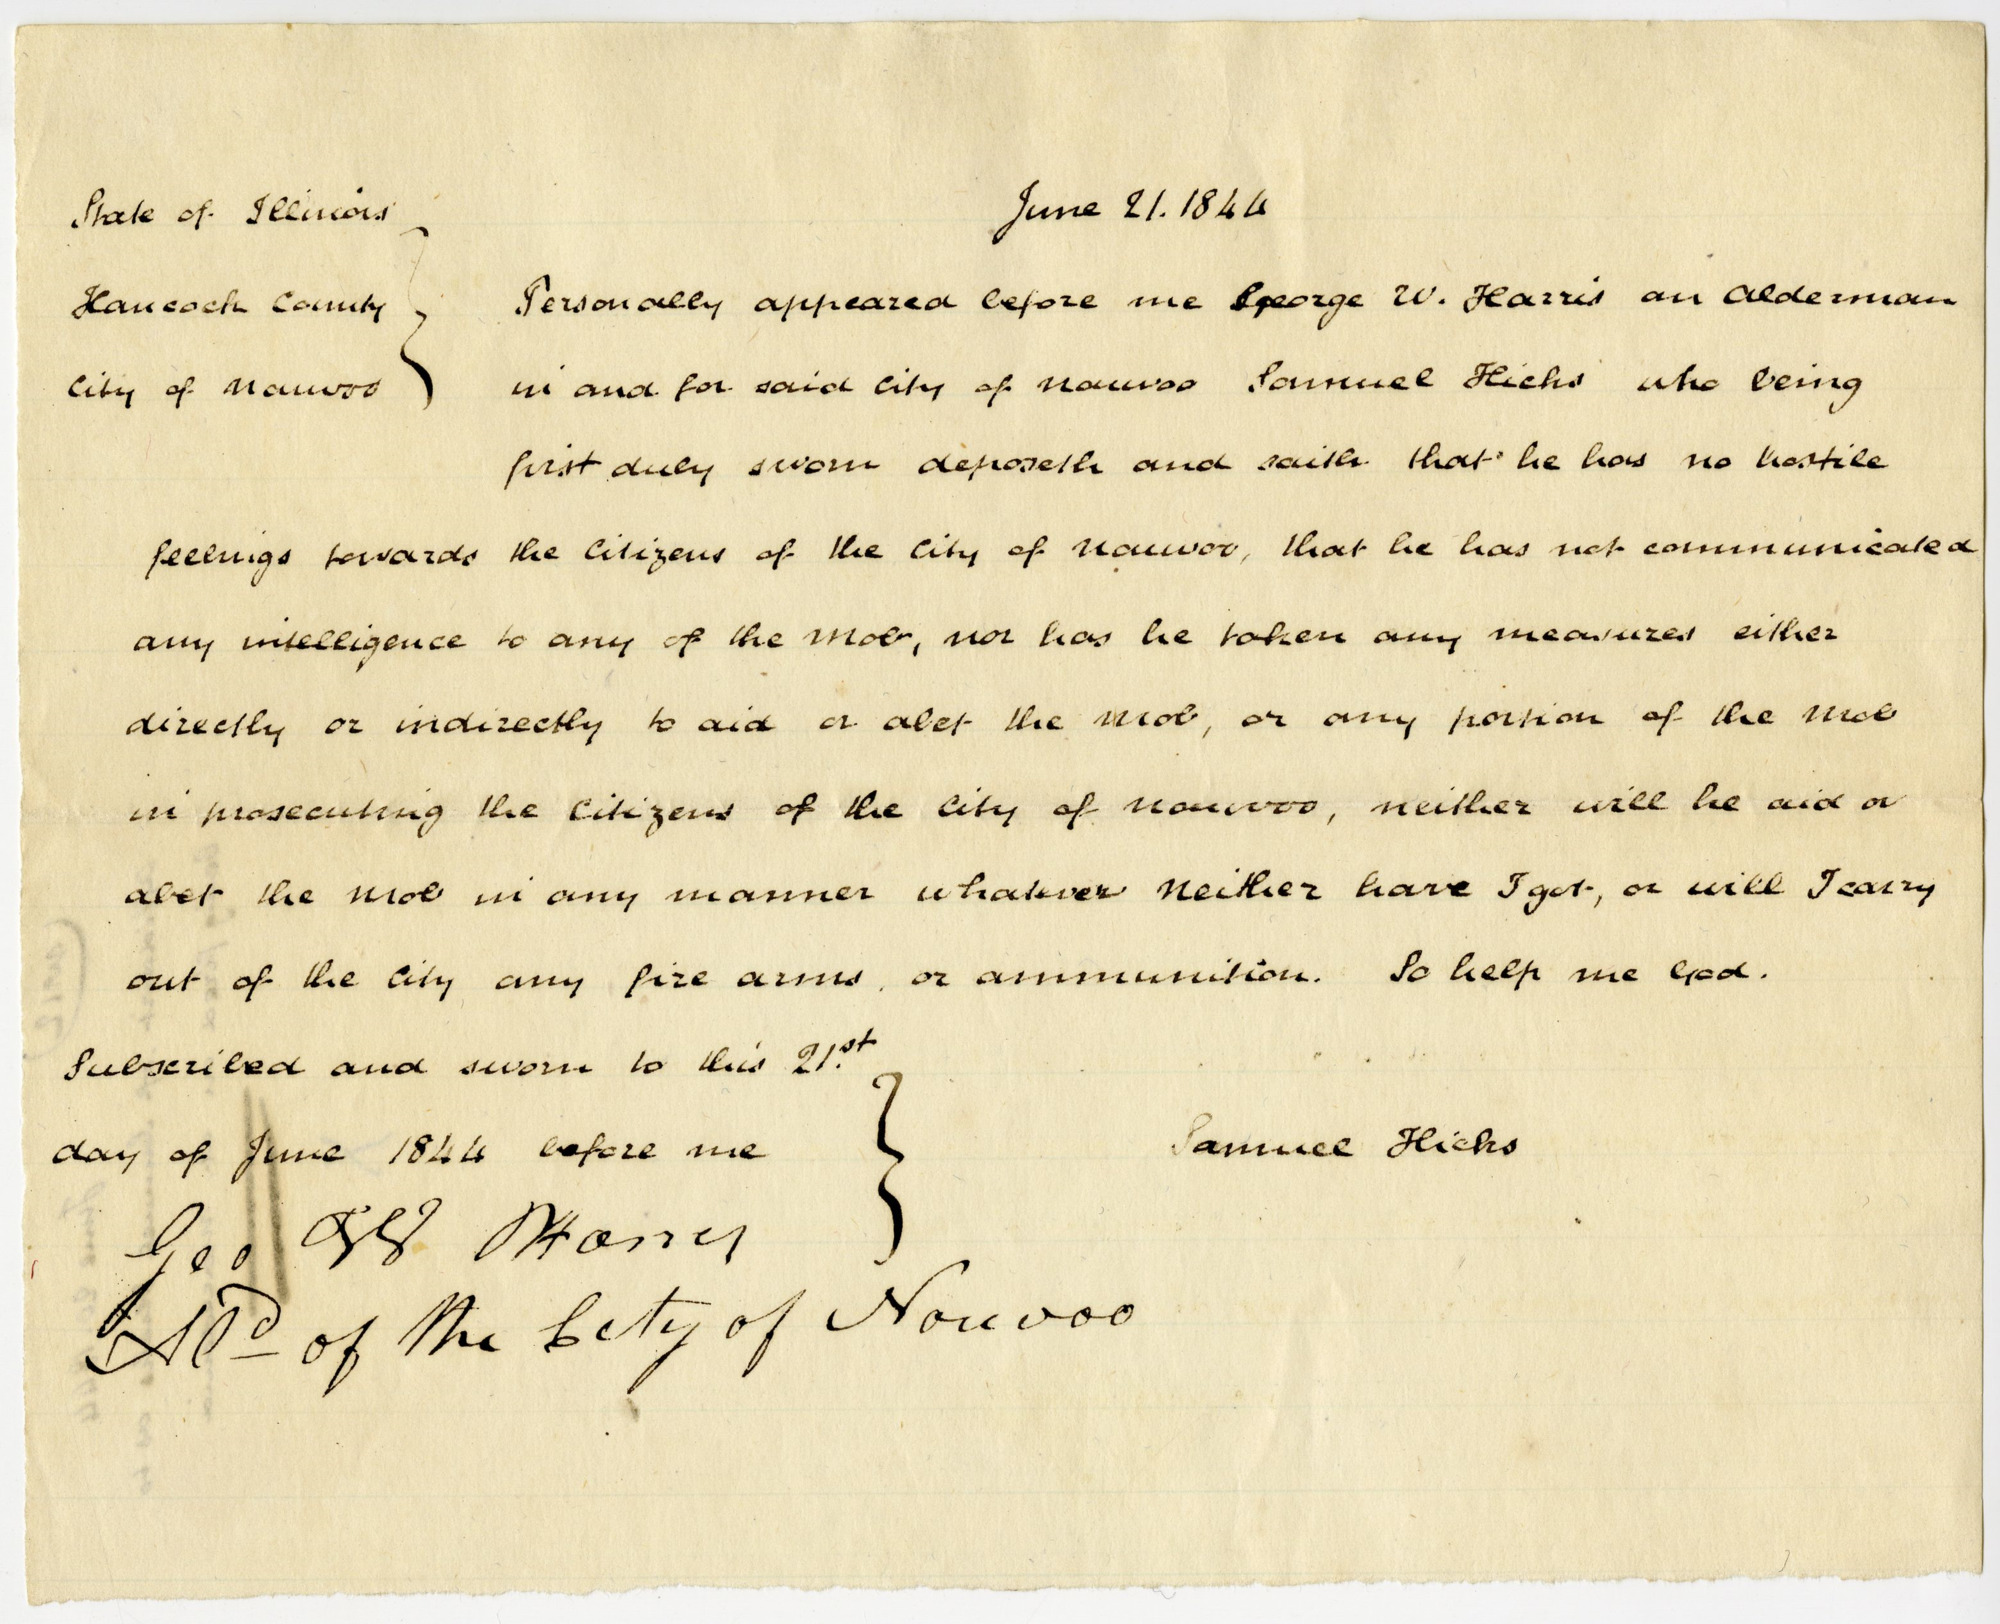 June 21. 1844
State of Illinois
Hancock County
City of Nauvoo
Personally appeared before me George W. Harris an Alderman
in and for said City of Nauvoo Samuel Hicks who being
first duly sworn deposeth and saith that he has no hostile
feelings towards the Citizens of the City of Nauvoo, that he has not communicated
any intelligence to any of the Mob, nor has he taken any measures either
directly or indirectly to aid or abet the Mob, or any portion of the Mob
in prosecuting the Citizens of the City of Nauvoo, neither will he aid or
abet the Mob in any manner whatever Neither have I got, or will I carry
out of the City any fire arms, or ammunition. So help me God.
Subscribed and sworn to this 21.st
day of June 1844 before me
Samuel Hicks
Geo W Harris
Ald of the City of Nauvoo